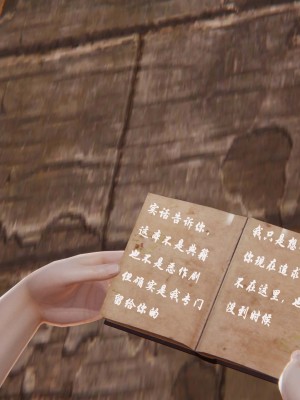 实话告诉你,
这本不是典籍
也不是恶作剧
但确实是我专门
留给你的
我只是想
你现在追求
不在这里,也
没到时候